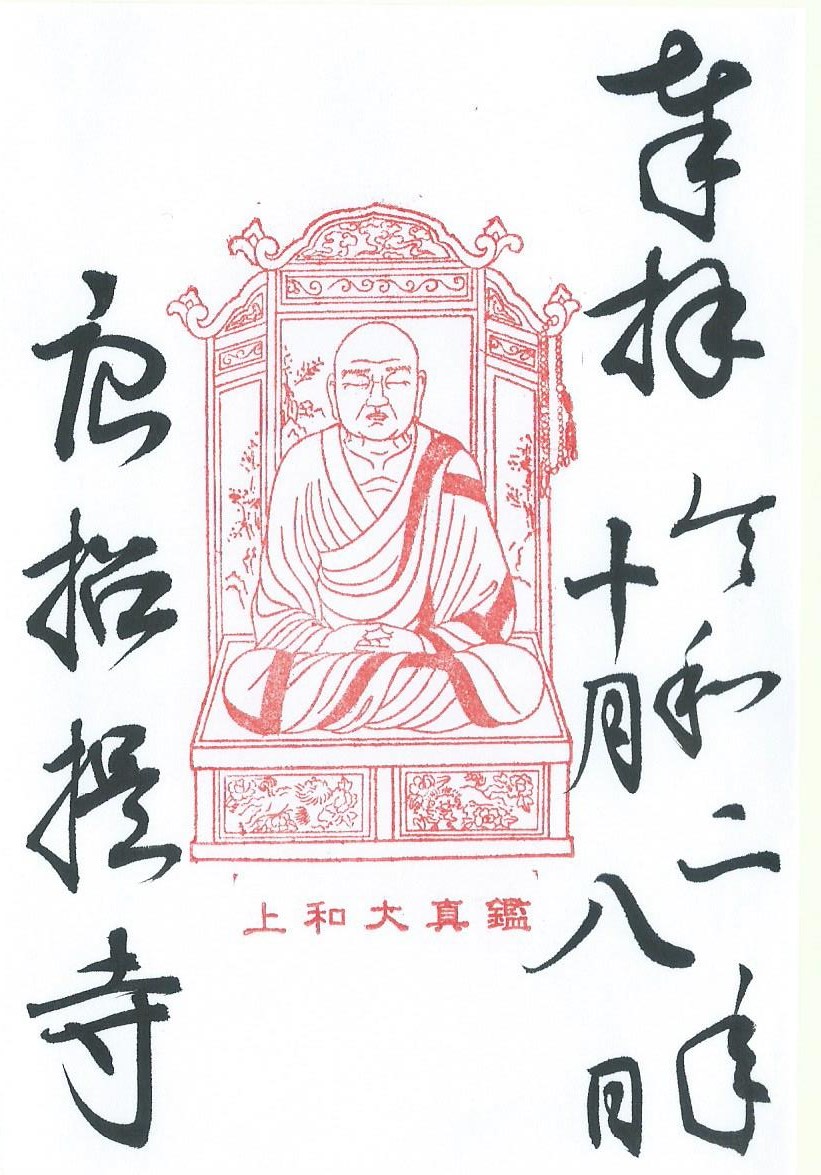 奉拝
令和二年
十月八日
上和大真鑑
唐招提寺